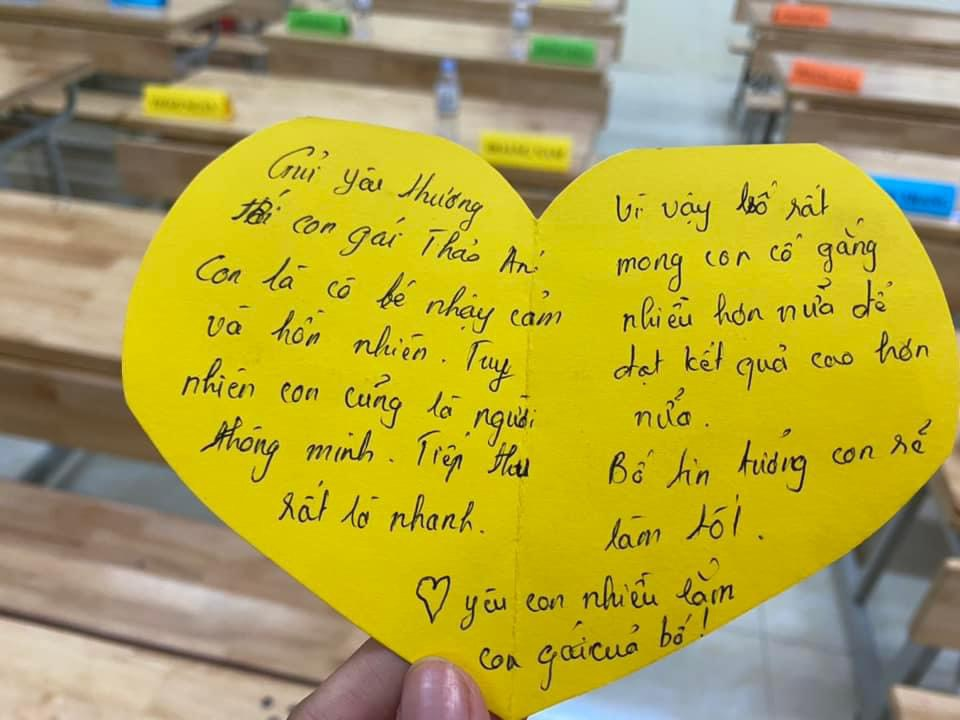 Gửi yêu thương
tới con gái Thảo An!
Con là cô bé nhạy cảm
và hồn nhiên. Tuy
nhiên con cũng là người
thông minh. Tiếp thu
rất là nhanh.
Vì vậy bố rất
mong con cố gắng
nhiều hơn nửa để
đạt kết quả cao hơn
nửa.
Bố tin tưởng con sẻ
làm tốt.
♡ yêu con nhiều lắm
con gái của bố!